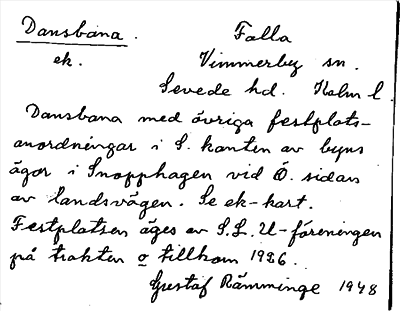 Dansbana. Falla
ek. Vimmerby sn.
Sevede hd. Kalm l.
Dansbana med övriga festplats-
anordningar i S. kanten av byns
ägor i Snopphagen vid Ö. sidan
av landsvägen. Se ek-kart.
Festplatsen äges av S.L.U-föreningen
på trakten o tillkom 1936.
Gustaf Rämminge 1948